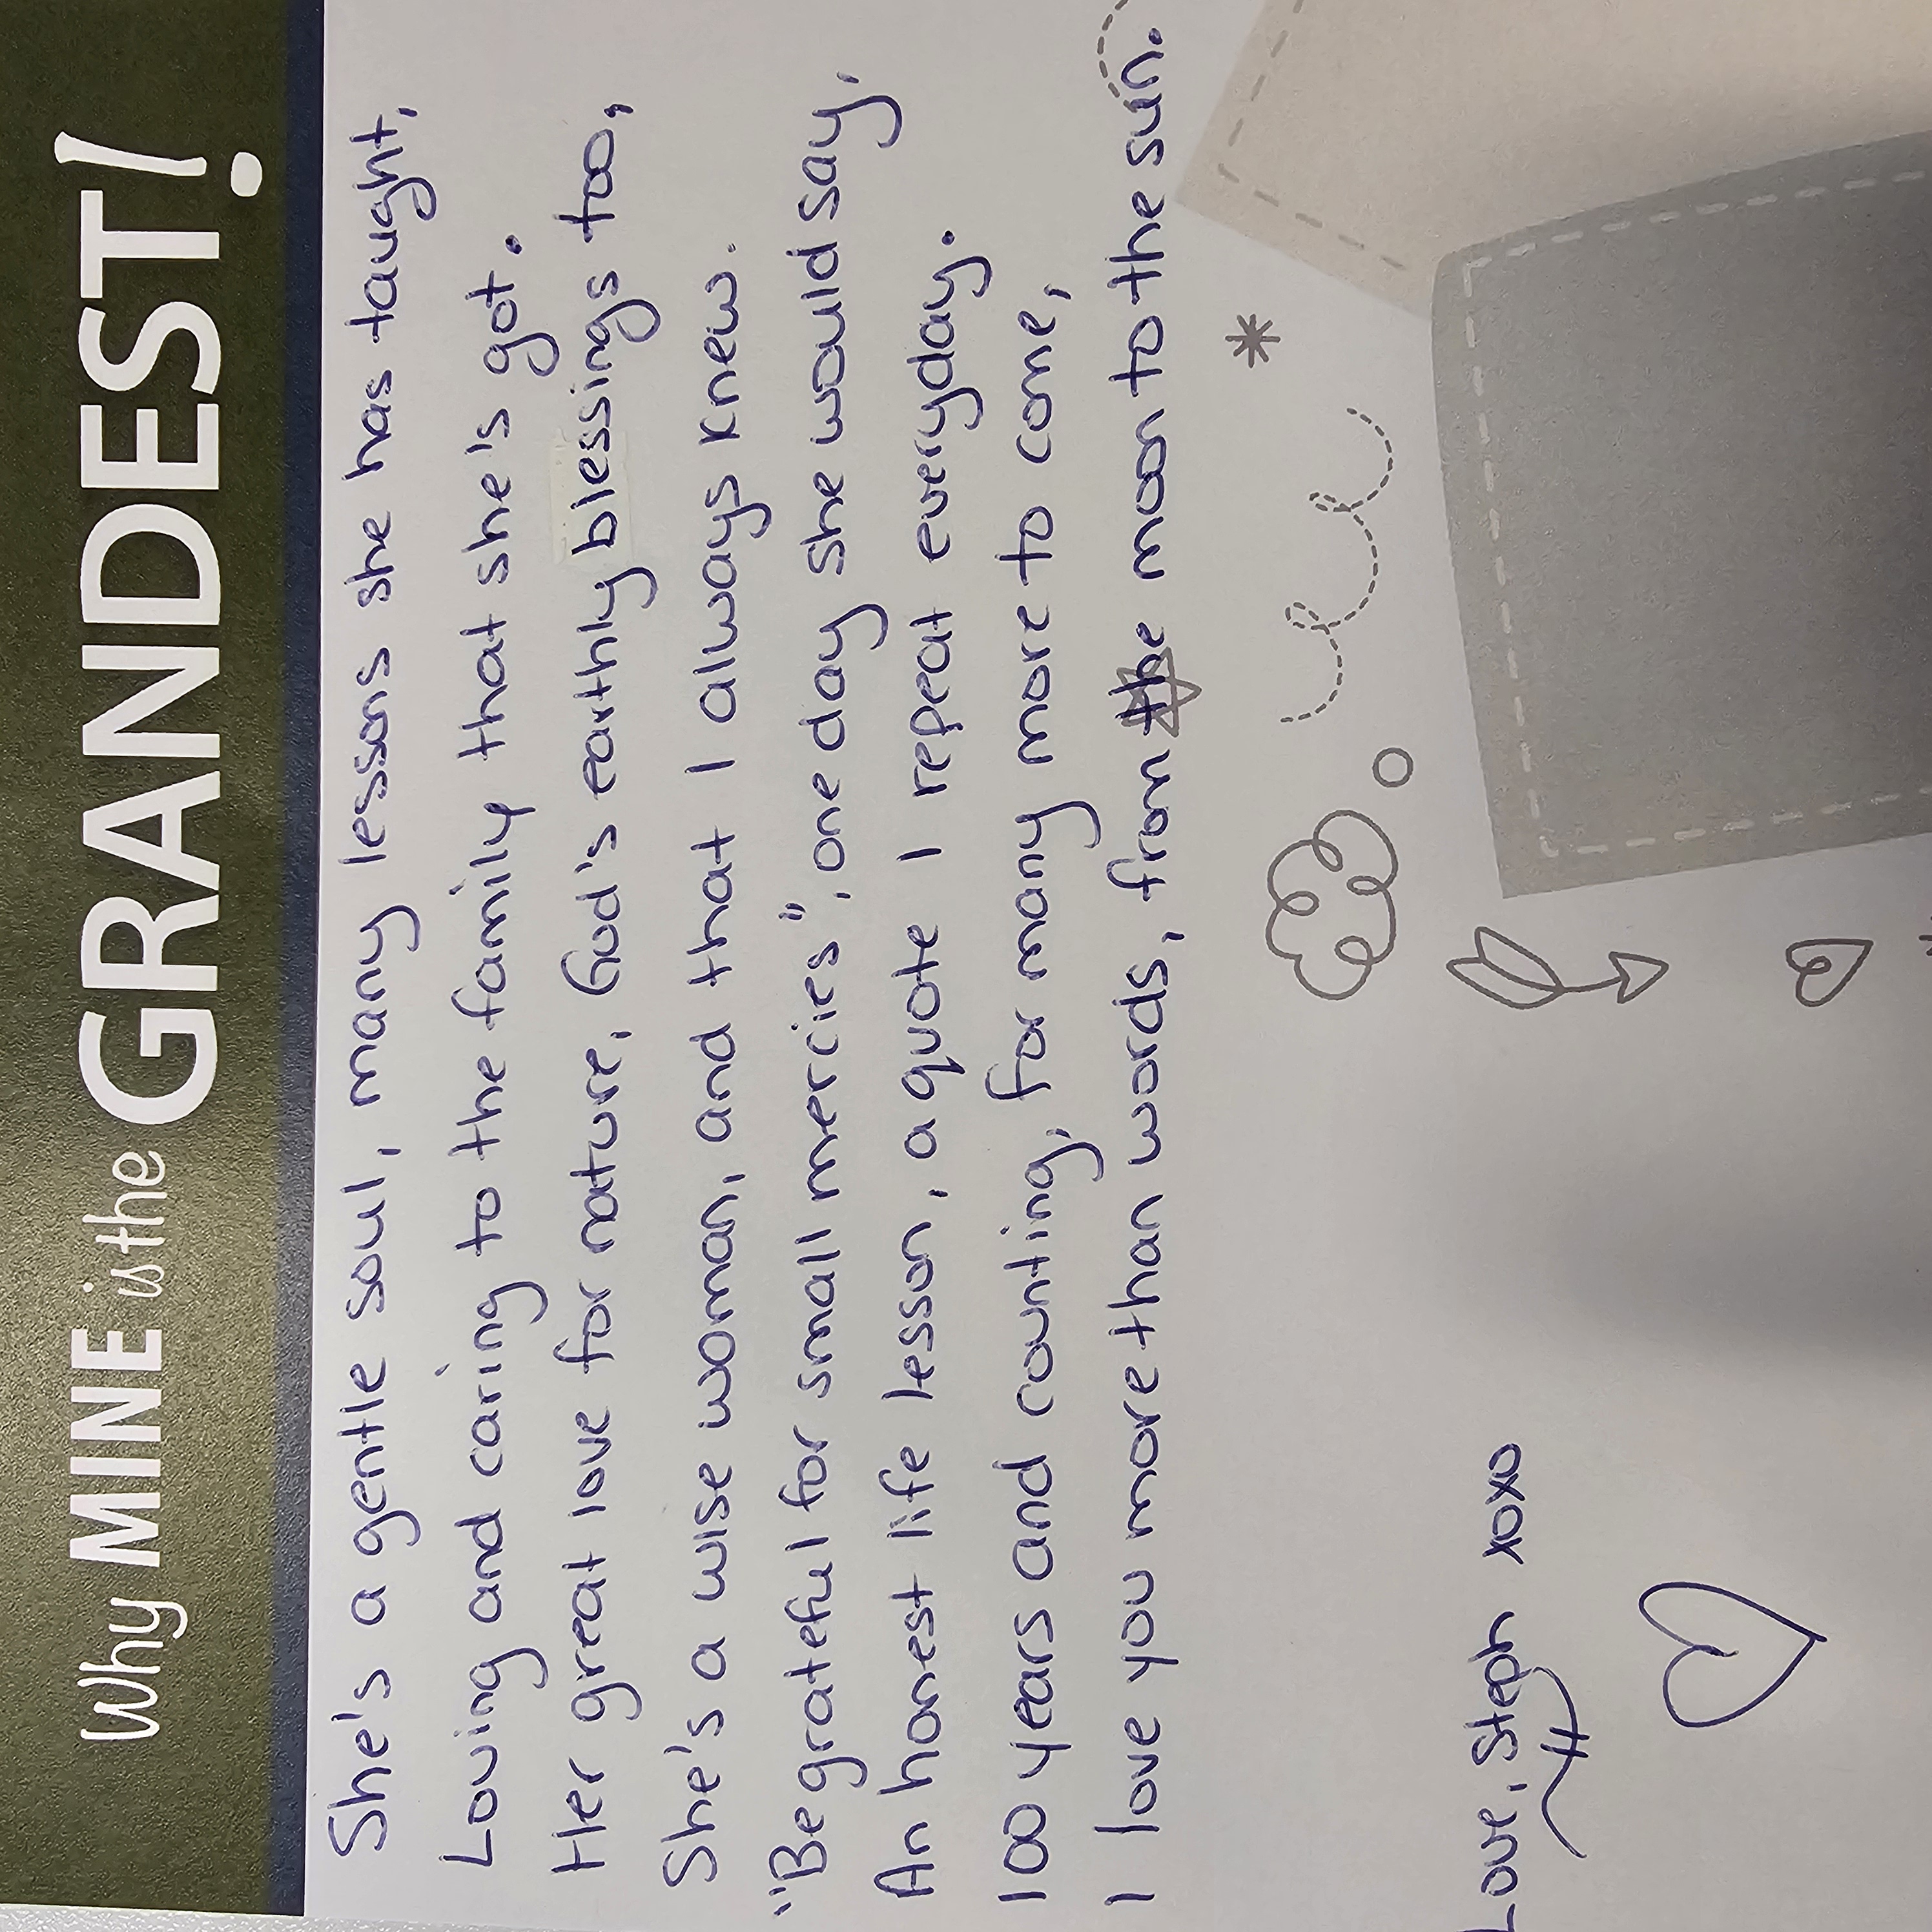 Why MINE is the GRANDEST!
She's a gentle soul, many lessons she has taught,
Loving and caring to the family that she's got.
Her great love for nature, God's earthly blessings too,
She's a wise woman, and that I always knew.
"Be grateful for small mercies", one day she would say,
An honest life lesson, a quote I repeat everyday.
100 years and counting, for many more to come,
I love you more than words, from the moon to the sun.
Love, Steph xoxo